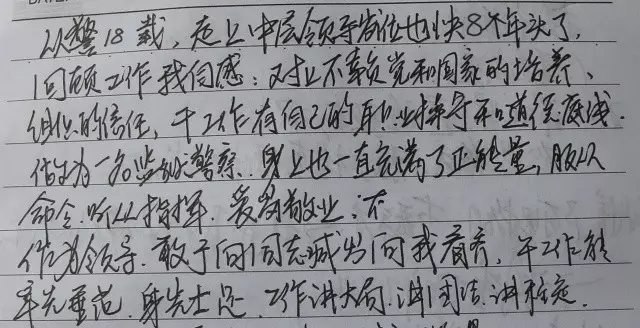 从警18载，走上中层领导岗位也快8个年头了，
回顾工作我自感：对上不辜负党和国家的培养、
组织的信任，干工作有自己的职业操守和道德底线。
作为一名监狱警察，身上也一直充满了正能量，服从
命令、听从指挥、爱岗敬业，不
作为领导，敢于向同志喊出向我看齐，干工作能
率先垂范，身先士足，工作讲大局、讲团结、讲稳定。